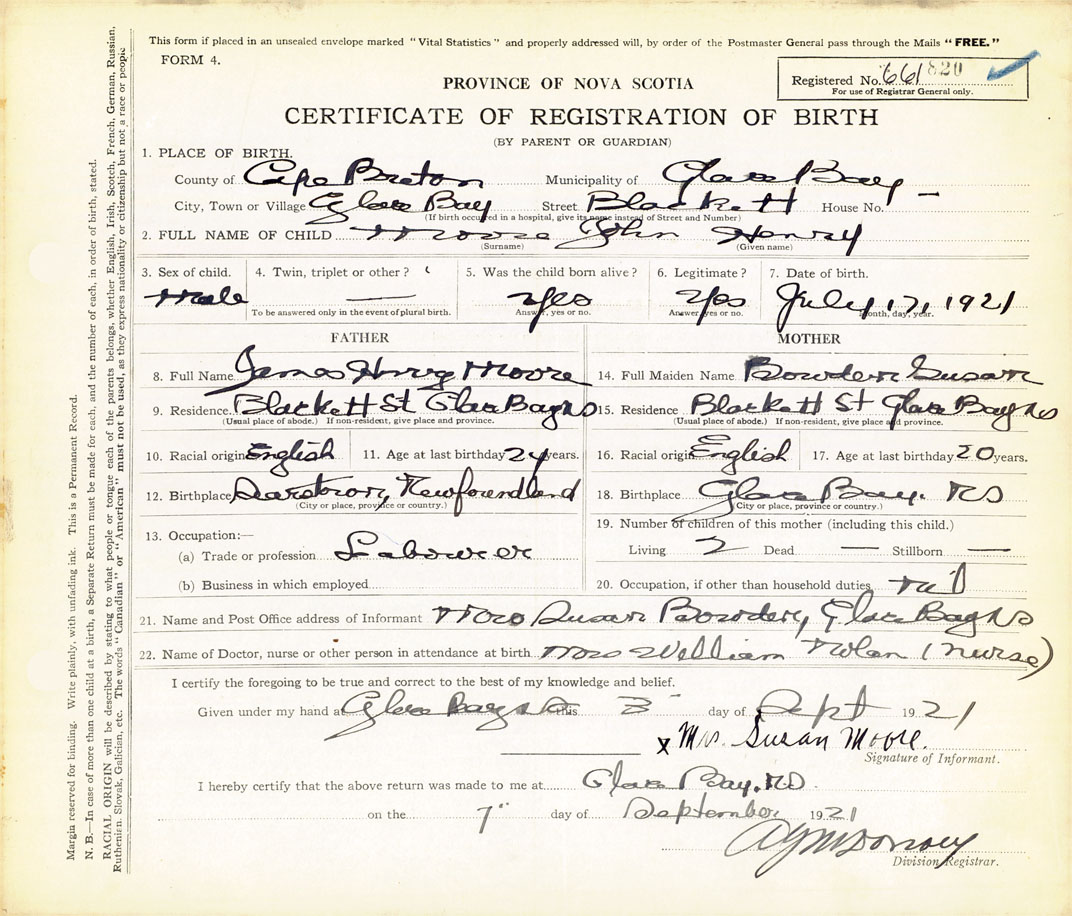 This form if placed in an unsealed envelope marked "Vital Statistics" and properly addressed will, by order of the Postmaster General pass through the Mails "FREE."
FORM 4.
Registered No. 661 820
For use of Registrar General only.
PROVINCE OF NOVA SCOTIA
CERTIFICATE OF REGISTRATION OF BIRTH
(BY PARENT OR GUARDIAN)
1. PLACE OF BIRTH.
County of Cape Breton Municipality of Glace Bay
City, Town or Village Glace Bay Street Blackett House No. —
(If birth occurred in a hospital, give its name instead of Street and Number)
2. FULL NAME OF CHILD Moore John Henry
(Surname) (Given name)
3. Sex of child. 4. Twin, triplet or other? 5. Was the child born alive? 6. Legitimate? 7. Date of birth.
Male — Yes Yes July 17, 1921
To be answered only in the event of plural birth. Answer, yes or no. Answer yes or no. Month, day, year.
FATHER MOTHER
8. Full Name James Henry Moore 14. Full Maiden Name Bowden Susan
9. Residence. Blackett St Glace Bay NS 15. Residence Blackett St Glace Bay NS
(Usual place of abode.) If non-resident, give place and province. (Usual place of abode.) If non-resident, give place and province.
10. Racial origin English 11. Age at last birthday 24 years. 16. Racial origin English 17. Age at last birthday 20 years.
12. Birthplace Newfoundland 18. Birthplace Glace Bay. NS
(City or place, province or country.) (City or place, province or country.)
13. Occupation:— 19. Number of children of this mother (including this child.)
(a) Trade or profession Labourer Living 2 Dead — Stillborn —
(b) Business in which employed 20. Occupation, if other than household duties
21. Name and Post Office address of Informant Mrs Susan Bowden, Glace Bay NS
22. Name of Doctor, nurse or other person in attendance at birth Mrs William Nolan (Nurse)
I certify the foregoing to be true and correct to the best of my knowledge and belief.
Given under my hand at Glace Bay NS this 3 day of Sept 1921
x Mrs. Susan Moore.
Signature of Informant.
I hereby certify that the above return was made to me at Glace Bay. NS
on the 7" day of September 1921
Division Registrar.
Margin reserved for binding. Write plainly, with unfading ink. This is a Permanent Record.
N. B.—In case of more than one child at a birth, a Separate Return must be made for each, and the number of each, in order of birth, stated.
RACIAL ORIGIN will be described by stating to what people or tongue each of the parents belongs, whether English, Irish, Scotch, French, German, Russian,
Ruthenian, Slovak, Galician, etc. The words "Canadian" or "American" must not be used, as they express nationality or citizenship but not a race or people